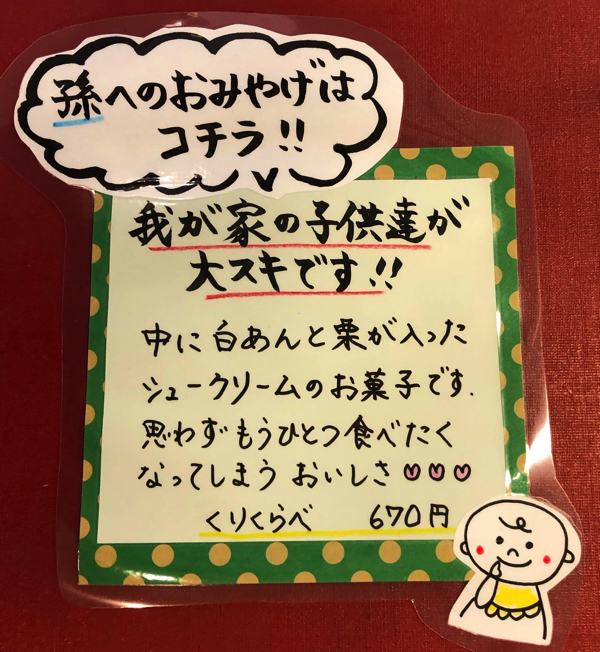 孫へのおみやげは
コチラ!!
我が家の子供達が
大スキです!!
中に白あんと栗が入った
シュークリームのお菓子です.
思わずもうひとつ食べたく
なってしまう おいしさ
くりくらべ 670円